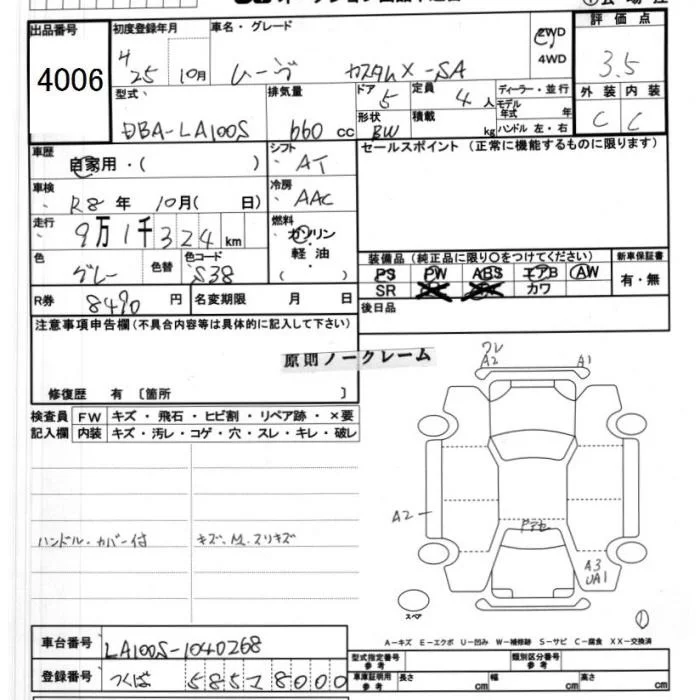 出品番号
4006
初度登録年月
4
25 10月
車名・グレード
ムーヴ カスタムX-SA
2WD
4WD
評価点
3.5
外装 内装
C C
型式
DBA-LA100S
排気量
660 cc
ドア
5
形状
BW
定員
4 人
積載
kg
ディーラー・並行
モデル年式 年
ハンドル 左・右
車歴
自家用・( )
シフト
AT
車検
R8 年 10月( 日)
冷房
AAC
走行
9万1千324 km
燃料
ガソリン
軽油
( )
色
グレー
色替
色コード
S38
R券 8490 円
名変期限 月 日
セールスポイント(正常に機能するものに限ります)
装備品(純正品に限り○をつけてください)
PS PW ABS エアB AW
SR カワ
新車保証書
有・無
後日品
注意事項申告欄(不具合内容等は具体的に記入して下さい)
修復歴 有 〔箇所 〕
原則ノークレーム
検査員
記入欄
FW キズ・飛石・ヒビ割・リペア跡・×要
内装 キズ・汚レ・コゲ・穴・スレ・キレ・破レ
ハンドル・カバー付
キズ、M、スリキズ
ワレ
A2
A1
A2
A3
UA1
スペア
A-キズ E-エクボ U-凹み W-補修跡 S-サビ C-腐食 XX-交換済
車台番号 LA100S-1040268
登録番号 つくば 585 ス 8000
型式指定番号
参考
類別区分番号
参考
車庫証明用
参考
長さ cm
幅 cm
高さ cm